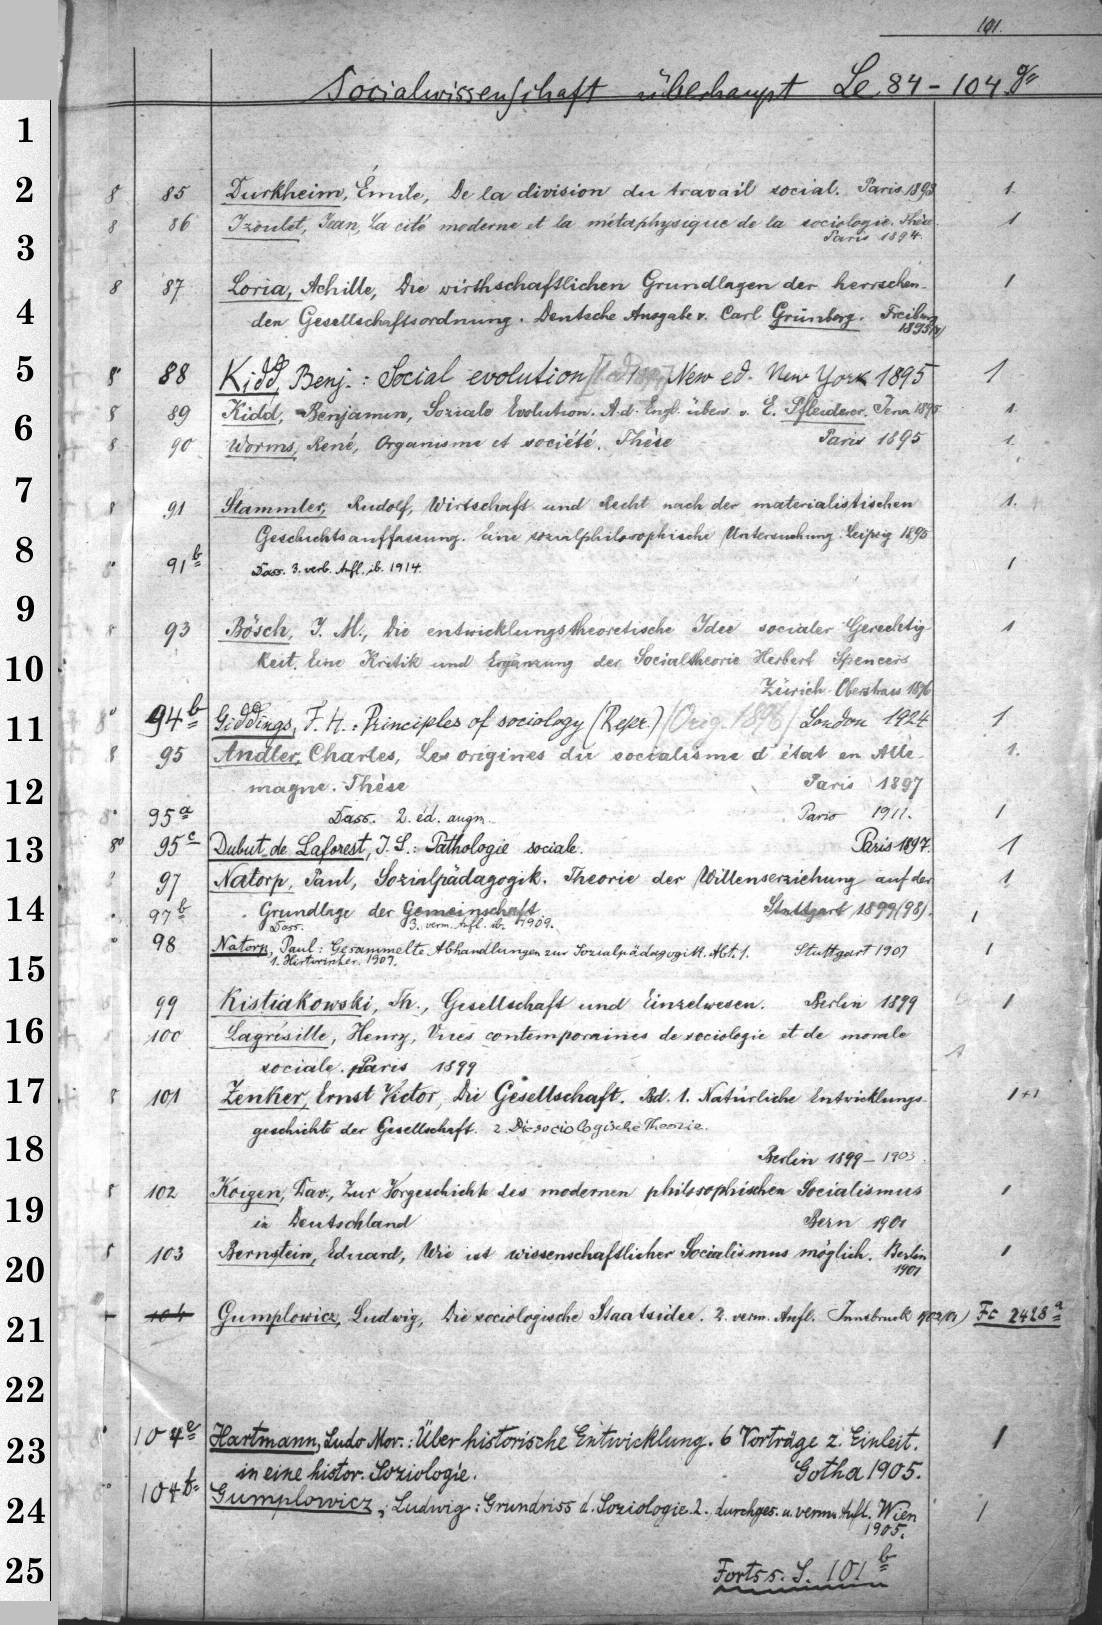 101.
Socialwissenschaft überhaupt Le 84 - 104 g
1
2 8 85 Durkheim, Émile, De la division du travail social. Paris 1893 1.
8 86 Izoulet, Jean, La cité moderne et la métaphysique de la sociologie. Thèse 1
3 Paris 1894.
8 87 Loria, Achille, Die wirthschaftlichen Grundlagen der herrschen- 1
4 den Gesellschaftsordnung. Deutsche Ausgabe v. Carl Grünberg. Freiburg
1895
5 8° 88 Kidd, Benj.: Social evolution New ed. New York 1895 1
8 89 Kidd, Benjamin, Soziale Evolution. A. d. Engl. übers. v. E. Pfleiderer. Jena 1895 1.
6 8 90 Worms, René, Organisme et société. Thèse Paris 1895 1.
7 8 91 Stammler, Rudolf, Wirtschaft und Recht nach der materialistischen 1.
Geschichtsauffassung. Eine sozialphilosophische Untersuchung. Leipzig 1895
8 8° 91b Dass. 3. verb. Aufl. ib. 1914. 1
9 8 93 Bösch, J. M., Die entwicklungstheoretische Idee socialer Gerechtig- 1
10 keit. Eine Kritik und Ergänzung der Socialtheorie Herbert Spencers
Zürich Oberstrass 1896
11 8° 94b Giddings, F. H.: Principles of sociology (Repr.) (Orig. 1896) London 1924 1
8 95 Andler, Charles, Les origines du socialisme d'état en Alle- 1.
12 magne. Thèse Paris 1897
8° 95a Dass. 2. éd. augm. Paris 1911. 1
13 8° 95c Dubut de Laforest, J. L.: Pathologie sociale. Paris 1897. 1
97 Natorp, Paul, Sozialpädagogik. Theorie der Willenserziehung auf der 1
14 97b Grundlage der Gemeinschaft Stuttgart 1899(98). 1
Dass. 3. verm. Aufl. ib. 1909.
98 Natorp, Paul: Gesammelte Abhandlungen zur Sozialpädagogik. Abt. 1. Stuttgart 1907 1
15 1. Historischer. 1907.
99 Kistiakowski, Th., Gesellschaft und Einzelwesen. Berlin 1899 1
16 100 Lagrésille, Henry, Vues contemporaines de sociologie et de morale
sociale. Paris 1899 1
17 8 101 Zenker, Ernst Victor, Die Gesellschaft. Bd. 1. Natürliche Entwicklungs- 1+1
geschichte der Gesellschaft. 2. Die sociologische Theorie.
18 Berlin 1899 - 1903.
8 102 Koigen, Dav., Zur Vorgeschichte des modernen philosophischen Socialismus 1
19 in Deutschland Bern 1901
8 103 Bernstein, Eduard, Wie ist wissenschaftlicher Socialismus möglich. Berlin 1
20 1901
21 104 Gumplowicz, Ludwig, Die sociologische Staatsidee. 2. verm. Aufl. Innsbruck 1902(01) Fc 2428a
22
23 8° 104a Hartmann, Ludo Mor.: Über historische Entwicklung. 6 Vorträge z. Einleit. 1
in eine histor. Soziologie. Gotha 1905.
24 104b Gumplowicz, Ludwig: Grundriss d. Soziologie. 2. durchges. u. verm. Aufl. Wien 1
1905.
25 Forts s. S. 101b